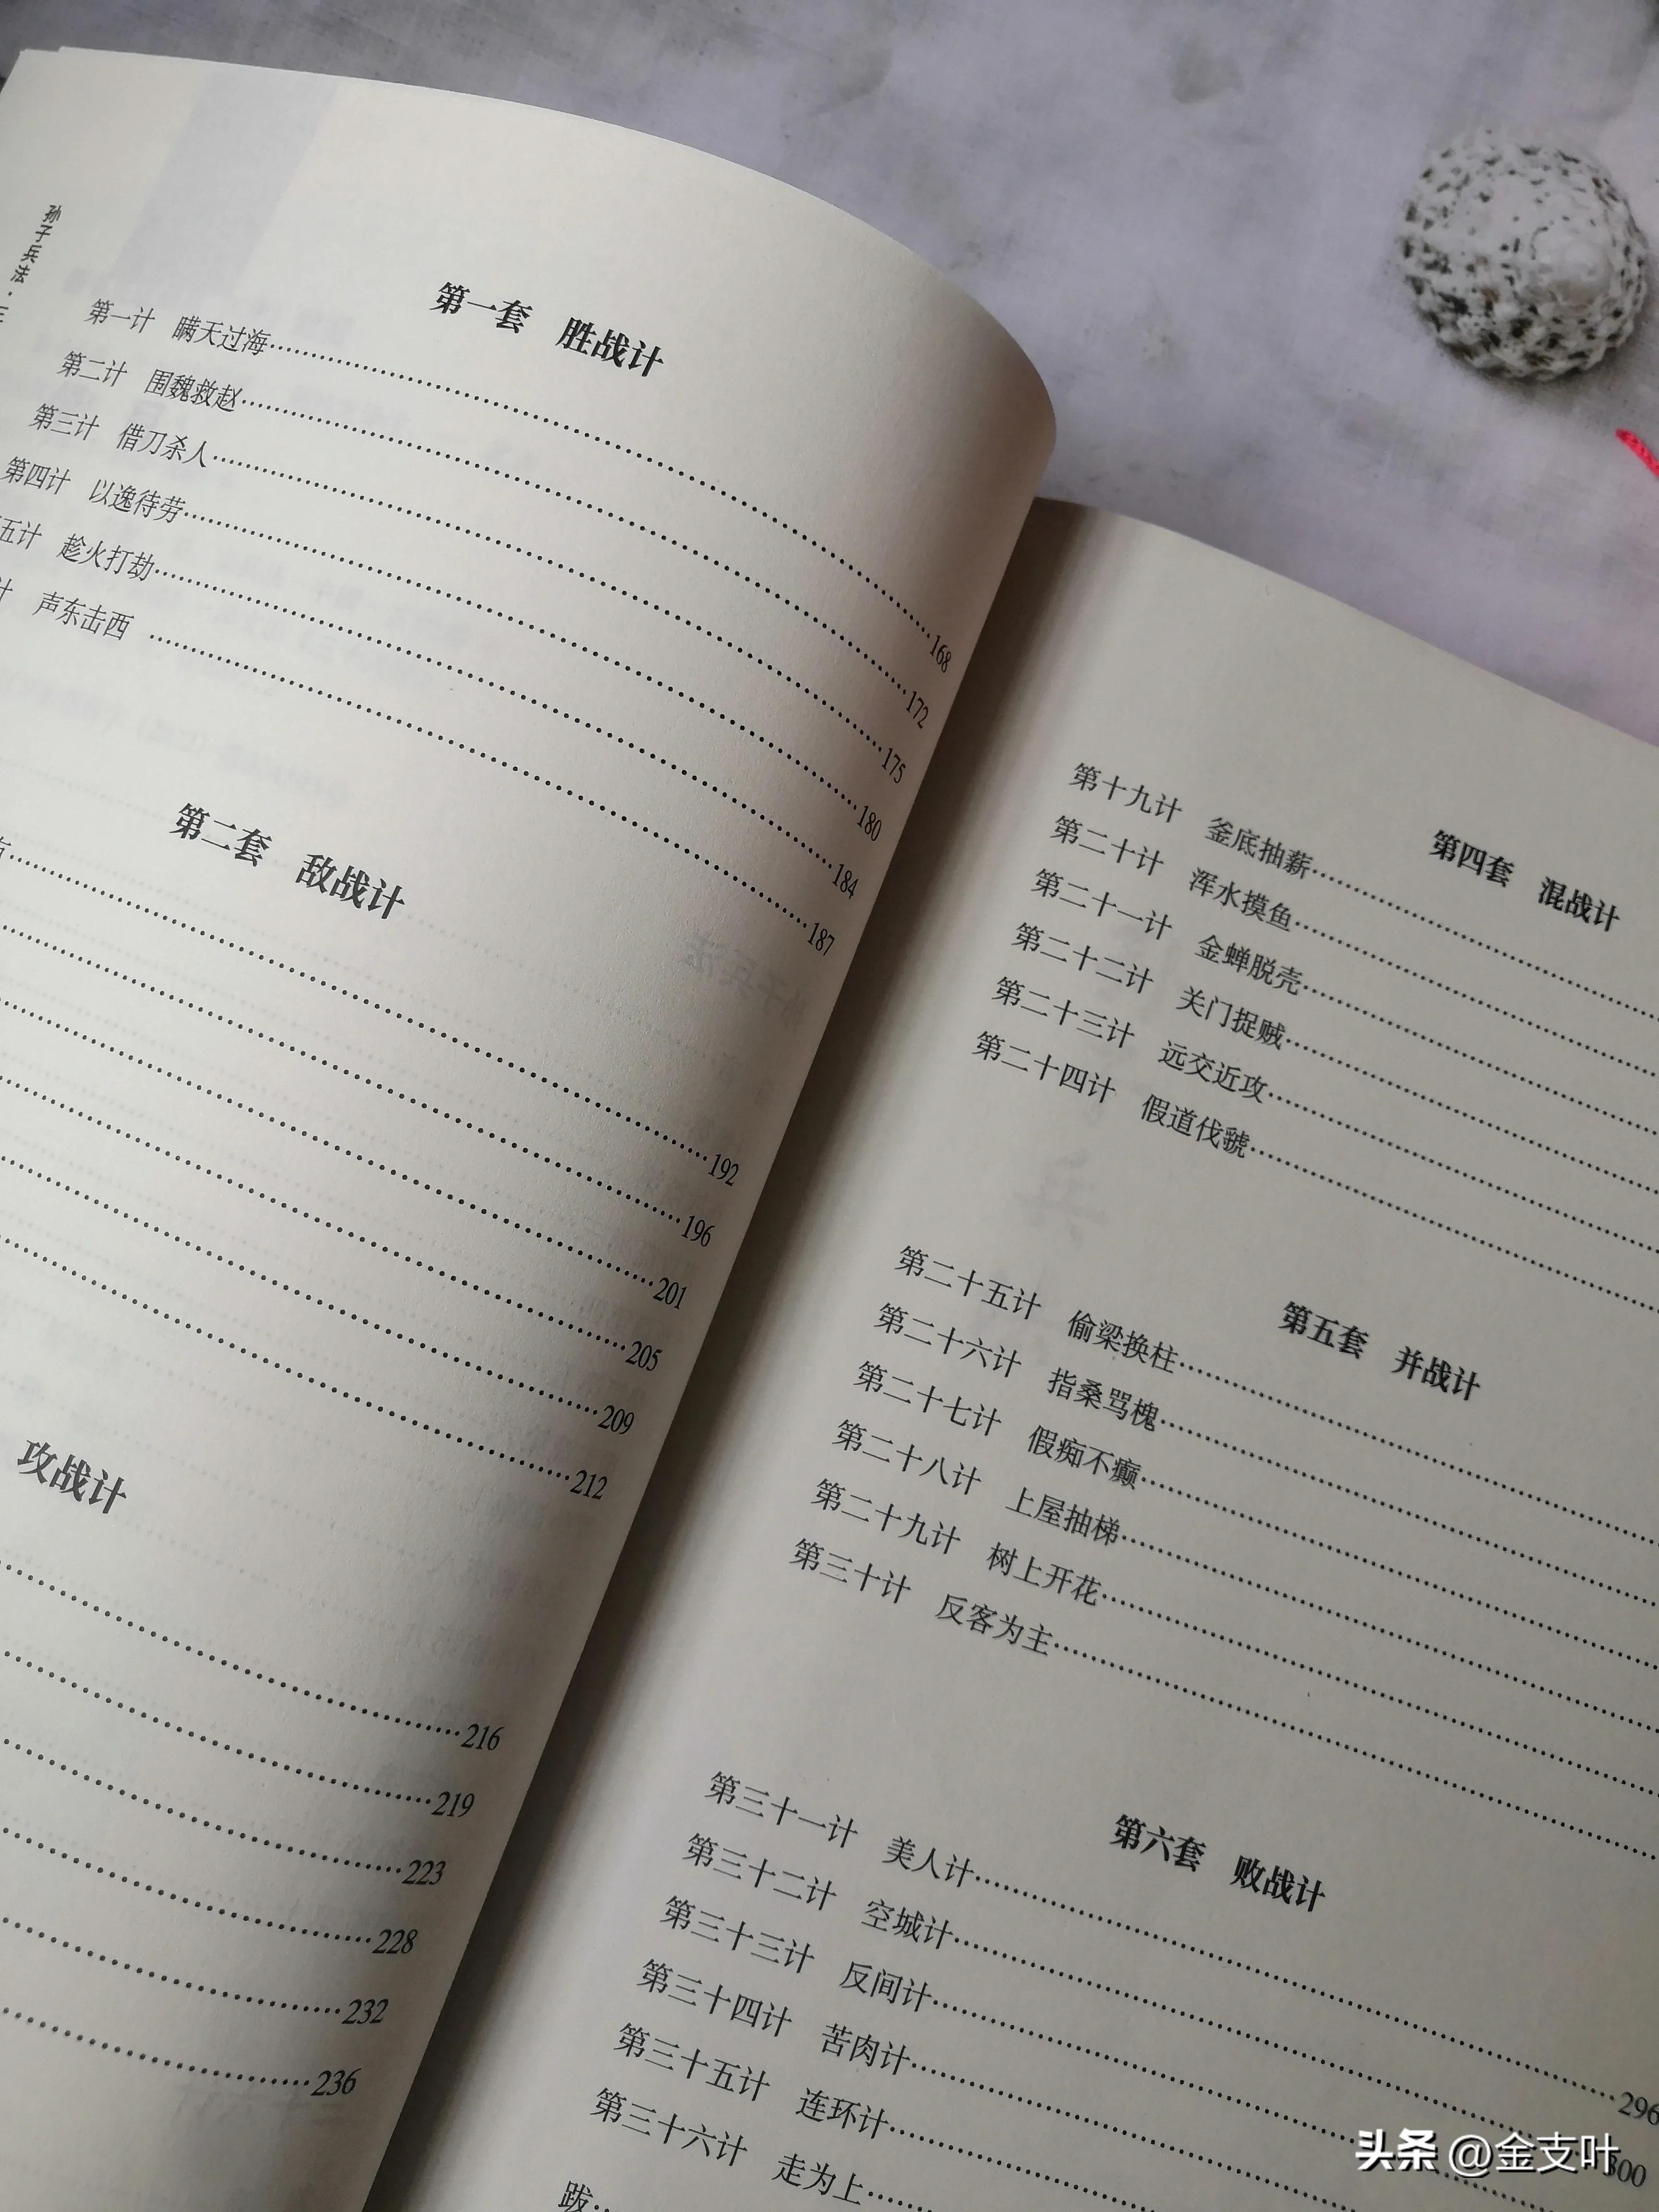 孙子兵法·三
第一套 胜战计
第一计 瞒天过海……168
第二计 围魏救赵……172
第三计 借刀杀人……175
第四计 以逸待劳……180
五计 趁火打劫……184
计 声东击西 ……187
第二套 敌战计
……192
……196
……201
……205
……209
……212
攻战计
……216
……219
……223
……228
……232
……236
第四套 混战计
第十九计 釜底抽薪……
第二十计 浑水摸鱼……
第二十一计 金蝉脱壳……
第二十二计 关门捉贼……
第二十三计 远交近攻……
第二十四计 假道伐虢……
第五套 并战计
第二十五计 偷梁换柱……
第二十六计 指桑骂槐……
第二十七计 假痴不癫……
第二十八计 上屋抽梯……
第二十九计 树上开花……
第三十计 反客为主……
第六套 败战计
第三十一计 美人计……296
第三十二计 空城计……300
第三十三计 反间计……
第三十四计 苦肉计……
第三十五计 连环计……
第三十六计 走为上……
跋……
头条 @金支叶